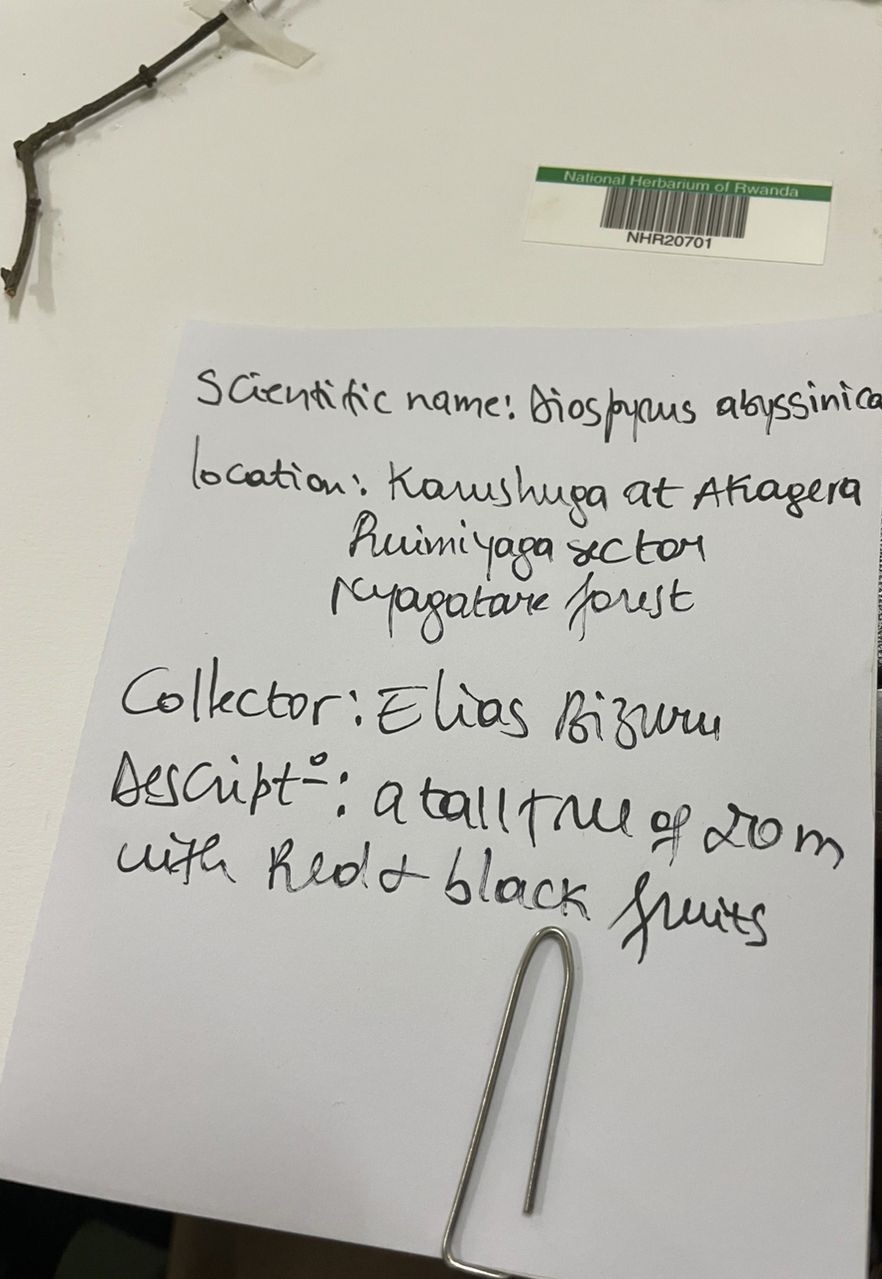 National Herbarium of Rwanda
NHR20701
Scientific name: Diospyrus abyssinica
location: Karushuga at Akagera
Ruimiyaga sector
Nyagatare forest
Collector: Elias Bizuru
Descript°: a tall tree of 20 m
with Red & black fruits